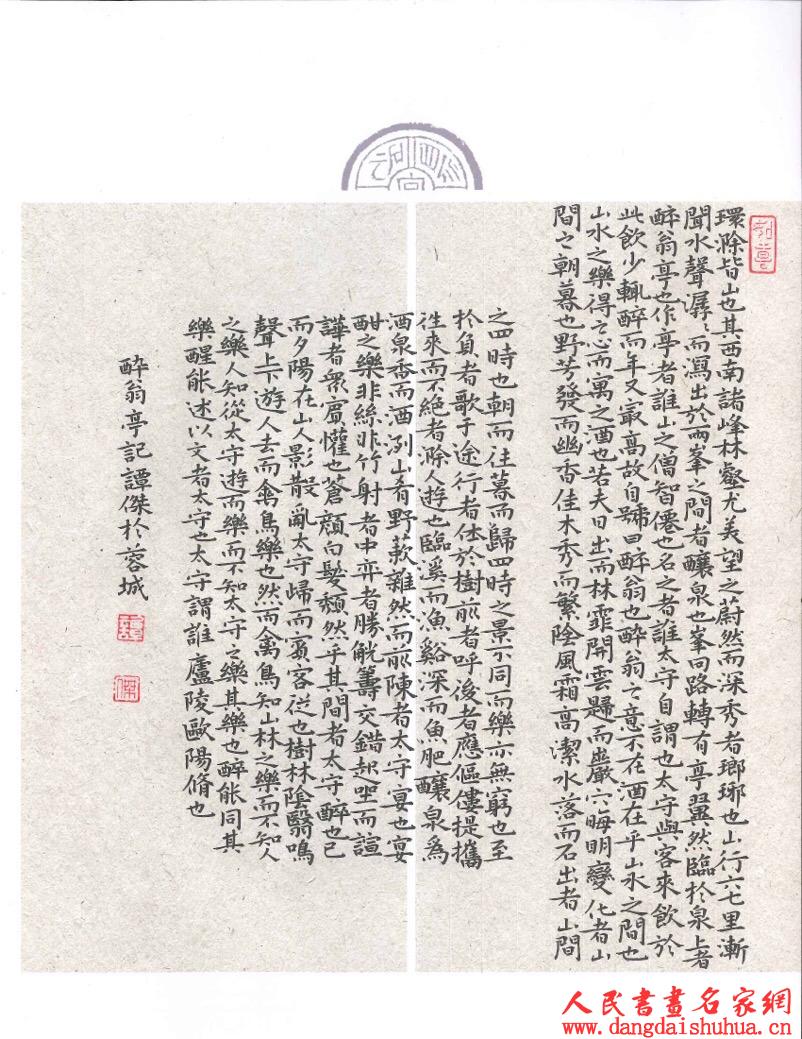 環滁皆山也其西南諸峰林壑尤美望之蔚然而深秀者瑯琊也山行六七里漸
聞水聲潺〻而瀉出於兩峯之間者釀泉也峯回路轉有亭翼然臨於泉上者
醉翁亭也作亭者誰山之僧智僊也名之者誰太守自謂也太守與客來飲於
此飲少輒醉而年又最高故自號曰醉翁也醉翁之意不在酒在乎山水之間也
山水之樂得之心而寓之酒也若夫日出而林霏開雲歸而巖穴晦明變化者山
間之朝暮也野芳發而幽香佳木秀而繁陰風霜高潔水落而石出者山間
之四時也朝而往暮而歸四時之景不同而樂亦無窮也至
於負者歌于途行者休於樹前者呼後者應傴僂提攜
往來而不絕者滁人遊也臨溪而漁谿深而魚肥釀泉為
酒泉香而酒洌山肴野蔌雜然而前陳者太守宴也宴
酣之樂非絲非竹射者中弈者勝觥籌交錯起坐而諠
譁者眾賓懽也蒼顏白髮頹然乎其間者太守醉也已
而夕陽在山人影散亂太守歸而賓客從也樹林陰翳鳴
聲上下遊人去而禽鳥樂也然而禽鳥知山林之樂而不知人
之樂人知從太守遊而樂而不知太守之樂其樂也醉能同其
樂醒能述以文者太守也太守謂誰廬陵歐陽脩也
醉翁亭記譚傑於蓉城
人民書畫名家網
www.dangdaishuhua.com